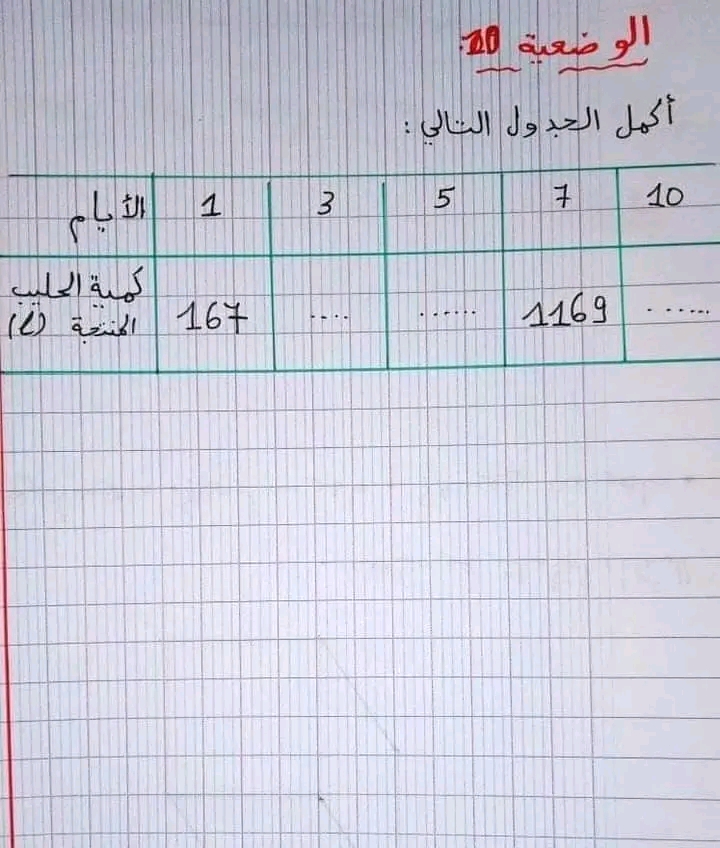 الوضعية 10:
أكمل الجدول التالي:
الأيام 1 3 5 7 10
كمية الحليب
المنتجة (l) 167 .... ...... 1169 ......